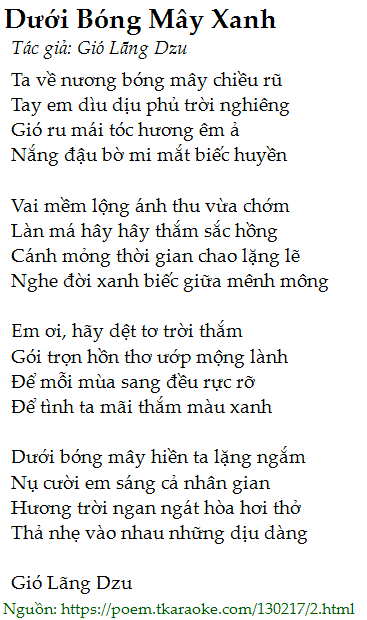 Dưới Bóng Mây Xanh
Tác giả: Gió Lãng Dzu
Ta về nương bóng mây chiều rũ
Tay em dìu dịu phủ trời nghiêng
Gió ru mái tóc hương êm ả
Nắng đậu bờ mi mắt biếc huyền
Vai mềm lộng ánh thu vừa chớm
Làn má hây hây thắm sắc hồng
Cánh mỏng thời gian chao lặng lẽ
Nghe đời xanh biếc giữa mênh mông
Em ơi, hãy dệt tơ trời thắm
Gói trọn hồn thơ ướp mộng lành
Để mỗi mùa sang đều rực rỡ
Để tình ta mãi thắm màu xanh
Dưới bóng mây hiền ta lặng ngắm
Nụ cười em sáng cả nhân gian
Hương trời ngan ngát hòa hơi thở
Thả nhẹ vào nhau những dịu dàng
Gió Lãng Dzu
Nguồn: https://poem.tkaraoke.com/130217/2.html